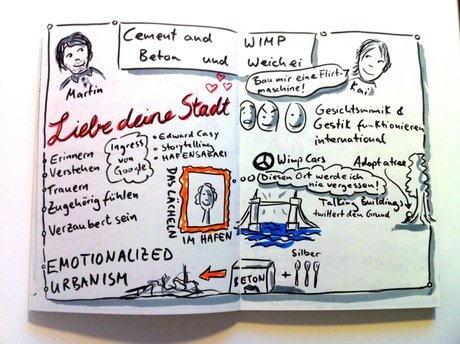 Cement and
Beton und
WIMP
Weichei
Martin
Bau mir eine Flirt-
maschine!
Kai
Liebe deine Stadt
Erinnern
Verstehen
Trauern
Zugehörig fühlen
Verzaubert sein
Ingress
von
Google
• Edward Casy
• Storytelling
• HAFENSAFARI
DAS LÄCHELN
IM HAFEN
EMOTIONALIZED
URBANISM
Gesichtsmimik &
Gestik funktionieren
international
Wimp Cars
Adopt a tree
Diesen Ort werde ich
nie vergessen!
Talking Buildings
twittert den Grund
BETON
+
Silber